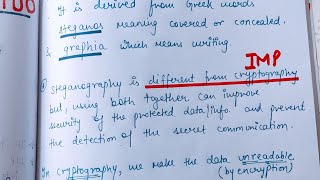 It is derived from Greek words
steganos meaning covered or concealed.
& graphia which means writing.
IMP
Steganography is different from cryptography
but, using both together can improve
security of the protected data/info. and prevent
the detection of the secret communication.
In cryptography, we make the data unreadable
(by encryption)